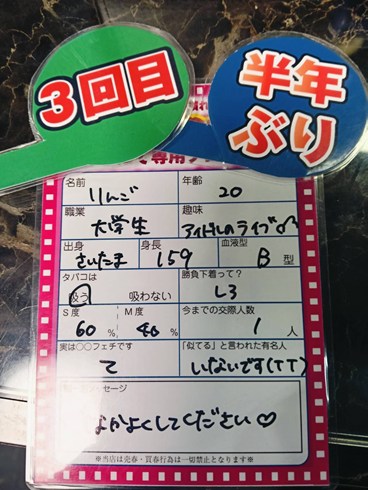 3回目
半年
ぶり
専用
名前 りんご 年齢 20
職業 大学生 趣味 アイドルのライブ♂♀
出身 さいたま 身長 159 血液型 B 型
タバコは 吸う 吸わない 勝負下着って? しろ
S度 60% M度 40% 今までの交際人数 1人
実は○○フェチです て 「似てる」と言われた有名人 いないです(TT)
セージ
なかよくしてください♡
※当店は売春・買春行為は一切禁止となります※